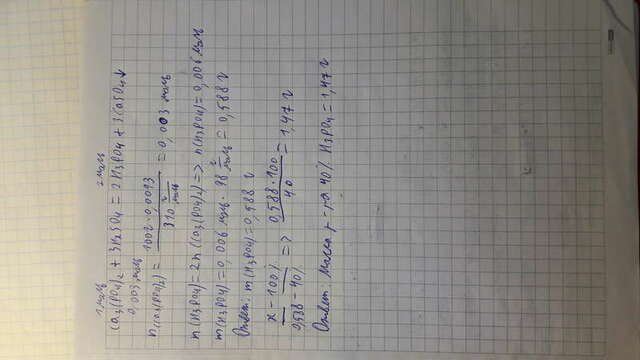 1 моль 2 моль
Ca3(PO4)2 + 3H2SO4 = 2H3PO4 + 3CaSO4↓
0,003 моль
n(Ca3(PO4)2) = 100г · 0,0093 / 310 г/моль = 0,003 моль
n(H3PO4) = 2n(Ca3(PO4)2) => n(H3PO4) = 0,006 моль
m(H3PO4) = 0,006 моль · 98 г/моль = 0,588 г
Ответ: m(H3PO4) = 0,588 г
x - 100% / 0,588 - 40% => 0,588 · 100 / 40 = 1,47 г
Ответ: Масса р-ра 40% H3PO4 = 1,47 г